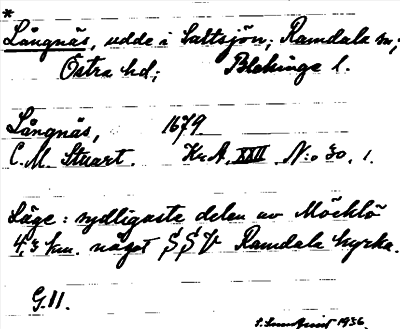 *
Långnäs, udde i Saltsjön; Ramdala sn;
Östra hd; Blekinge l.
Långnäs, 1679
C.M. Stuart. Kr.A. XXII N:o 30. 1.
Läge: sydligaste delen av Möcklö
4,3 km. något S S V Ramdala kyrka.
G.11.
1936.